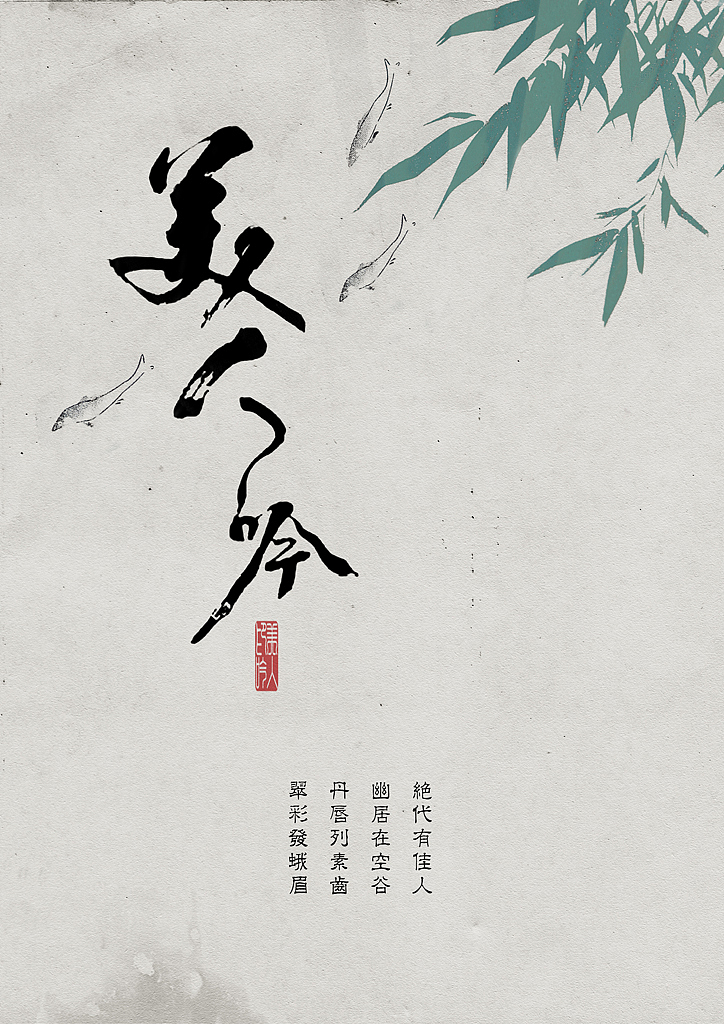 美人吟
美人
吟印
絶代有佳人
幽居在空谷
丹唇列素齒
翠彩發蛾眉